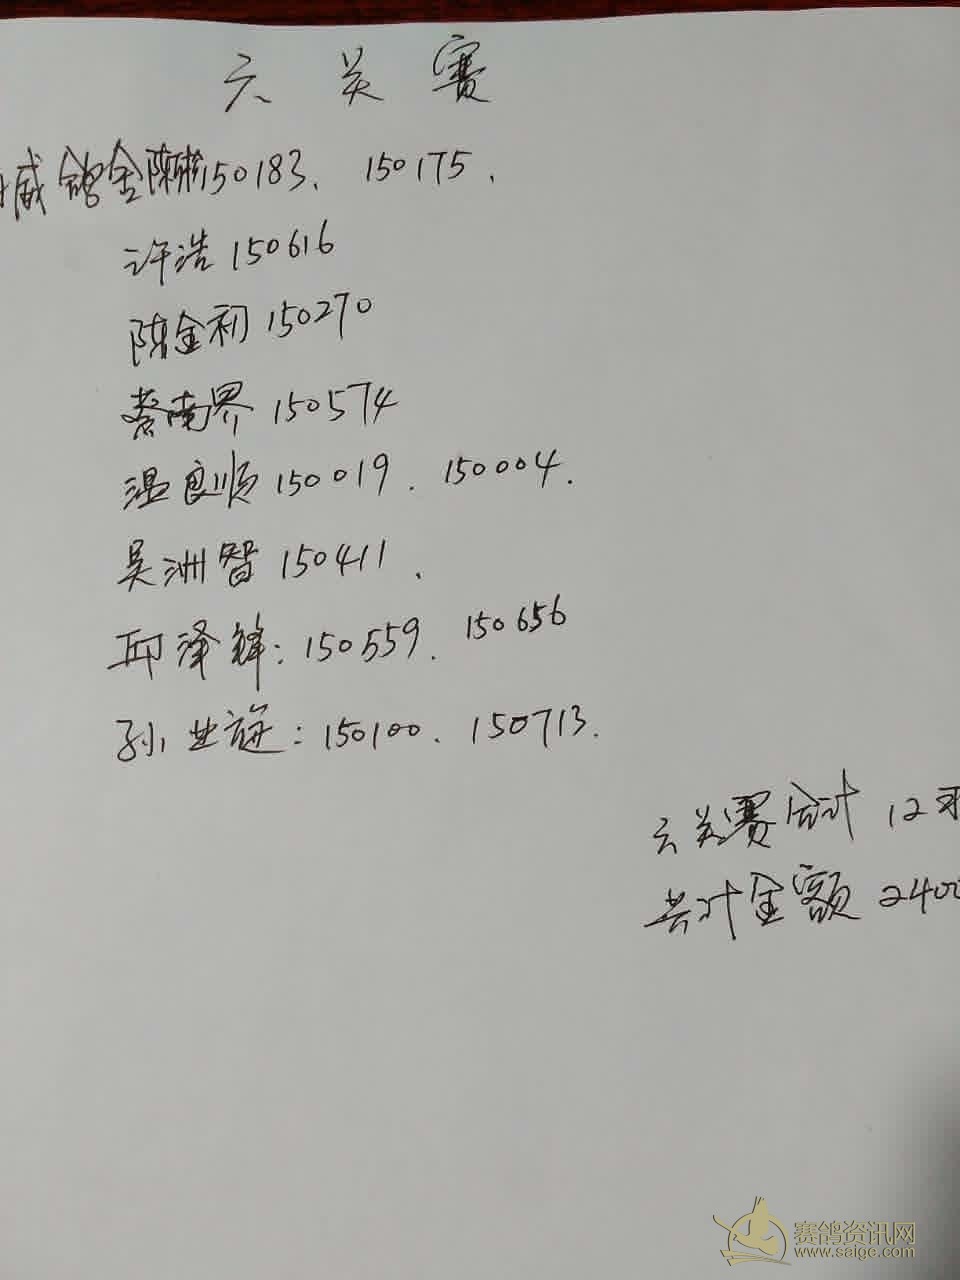 六关赛
威鸽舍陈彬150183、150175、
许浩150616
陈金初150270
蔡南界150574
温良顺150019、150004、
吴洲智150411、
邱泽锋:150559、150656
孙业旋:150100、150713、
六关赛合计12
共计金额2400
赛鸽资讯网
www.saigc.com